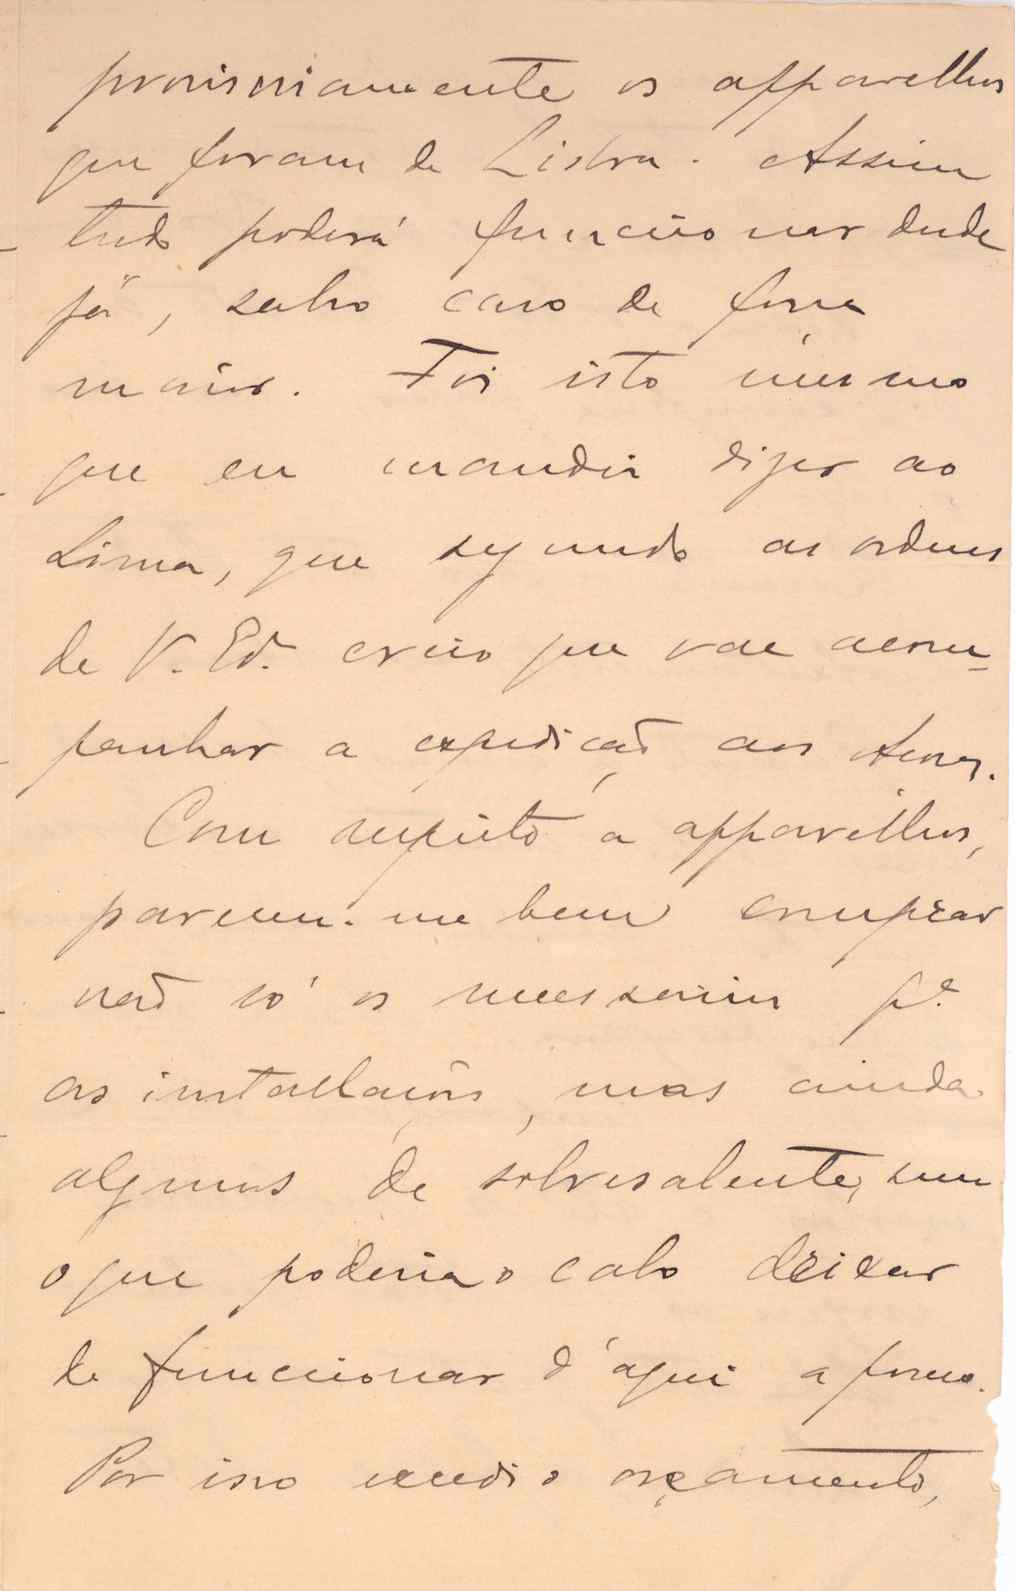 provisoriamente os apparelhos
que foram de Lisboa. Assim
tudo poderá funccionar desde
já, salvo caso de força
maior. Foi isto mesmo
que eu mandei dizer ao
Lima, que segundo as ordens
de V. Exª. creio que vae acom-
panhar a expedição aos Açores.
Com respeito a apparelhos,
pareceu-me bem comprar
não só os necessarios pª
as installações, mas ainda
algumas de sobresalente, sem
o que poderia o cabo deixar
de funccionar d'aqui a pouco.
Por isso excedi o orçamento,